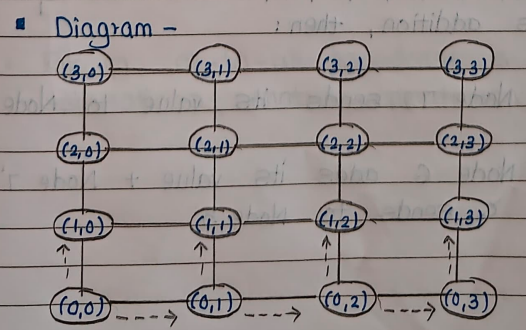 ▪ Diagram -
(3,0) (3,1) (3,2) (3,3)
(2,0) (2,1) (2,2) (2,3)
(1,0) (1,1) (1,2) (1,3)
(0,0) (0,1) (0,2) (0,3)